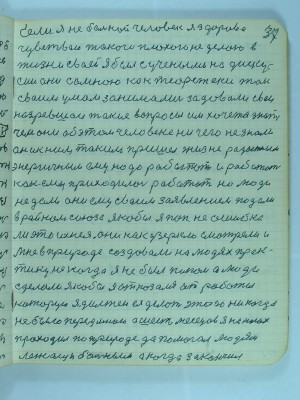 37
если я не больной человек я здорово
чувствовал такого плохого не делаю в
жизни своей я был с учениями на диску-
сии они со мною как теоретики там
своим умом занимали задовали свои
назревшие такие вопросы им хочется знать
чем они об этом человеке ничего не знали
а к ним таким пришел жизнерадостным
энергичным ему надо работать и работать
как ему приходилось работать но люди
не дали они ему своим заявлением подали
в райком союза якобы я поп не ошибка
ли это и меня они как узрели смотрели и
мне в природе создавали на людях прак-
тику никогда я не был попом а люди
сделали якобы я отказался от работы
которую я умел ее делать этого никогда
не было передо мною а шесть месяцев я на ногах
проходил по природе да помогал людям
лежащим больным а когда закончил